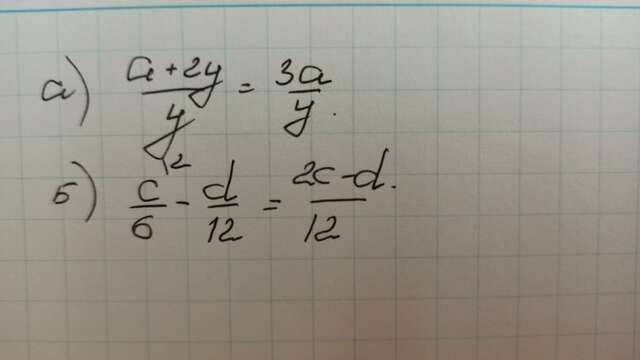 а) (a+2y)/y = 3a/y.
б) c\2/6 - d/12 = (2c-d)/12.